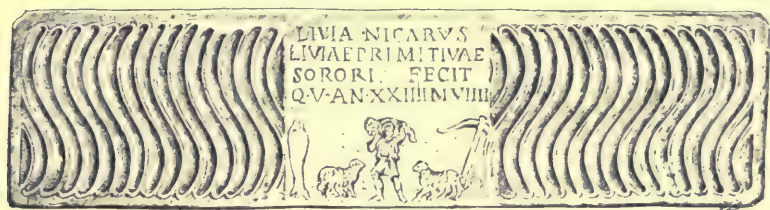 LIVIA NICARVS
LIVIAE PRIMITIVAE
SORORI FECIT
Q·V·AN·XXIIII M VIIII